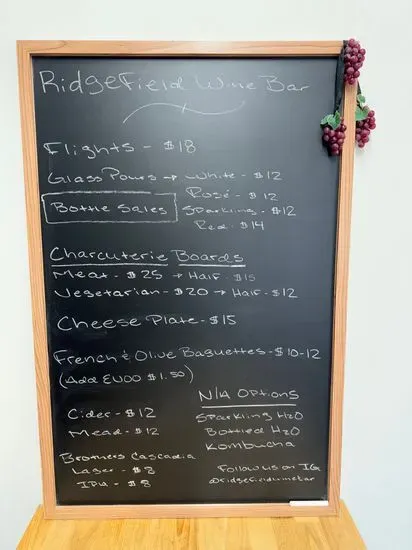 RidgeField Wine Bar
Flights - $18
Glass Pours → White - $12
Rosé - $12
Bottle Sales
Sparkling - $12
Red - $14
Charcuterie Boards
Meat - $25 → Half - $15
Vegetarian - $20 → Half - $12
Cheese Plate - $15
French & Olive Baguettes - $10-12
(Add EVOO $1.50)
N/A Options
Cider - $12
Sparkling H2O
Mead - $12
Bottled H2O
Kombucha
Brothers Cascadia
Lager - $8
IPA - $8
Follow us on IG
@ridgefieldwinebar